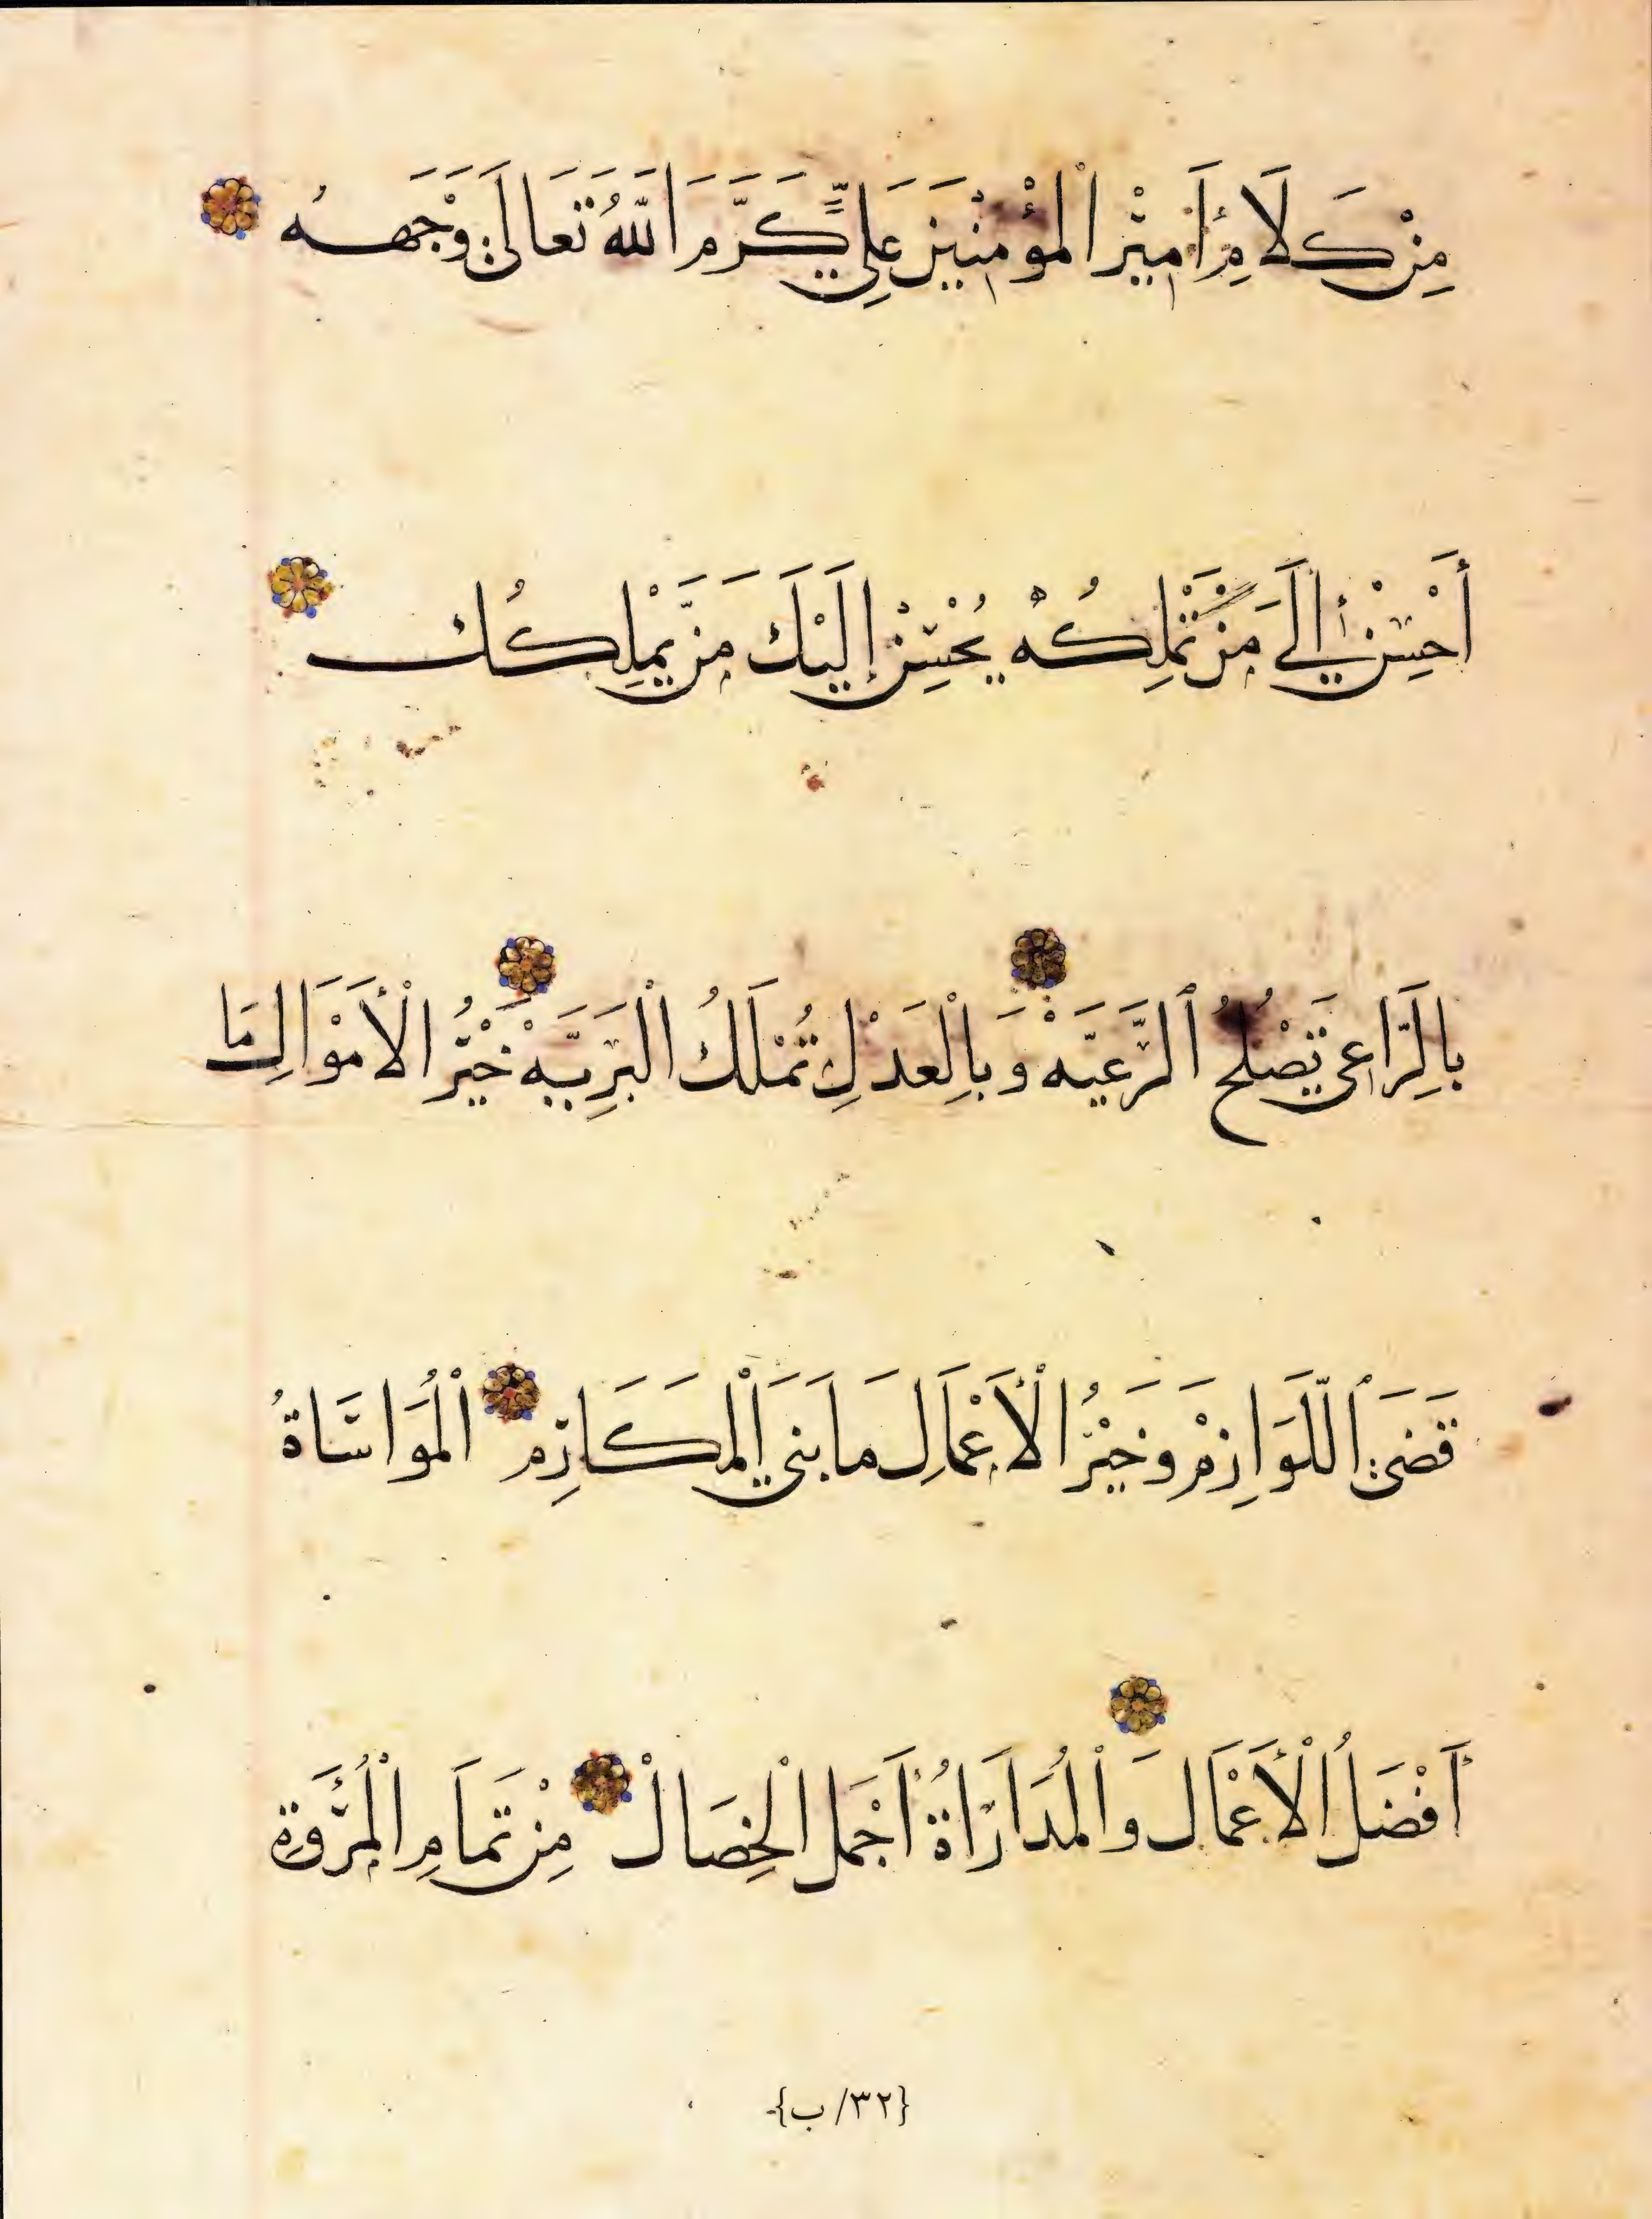 مِنْ كَلَامِ أَمِيْرِ الْمُؤْمِنِيْنَ عَلِيٍّ كَرَّمَ اللّٰهُ تَعَالَىٰ وَجْهَهُ
أَحْسِنْ إِلَىٰ مَنْ تَمْلِكُهُ يُحْسِنْ إِلَيْكَ مَنْ يَّمْلِكُكَ
بِالرَّاعِي تَصْلُحُ الرَّعِيَّه وَبِالْعَدْلِ تُمْلَكُ الْبَرِيَّه خَيْرُ الْأَمْوَالِ مَا
قَضَى اللَّوَازِمْ وَخَيْرُ الْأَعْمَالِ مَا بَنَى الْمَكَارِم الْمُوَاسَاةُ
أَفْضَلُ الْأَعْمَال وَالْمُدَارَاةُ أَجْمَل الْخِصَالْ مِنْ تَمَامِ الْمُرُوَّةِ
{٣٢/ب}